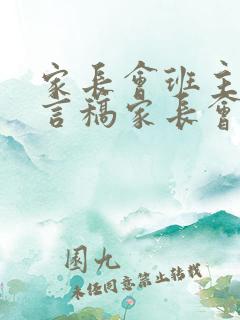 家長會班主
言稿家長會
園九
未經同意禁止轉載